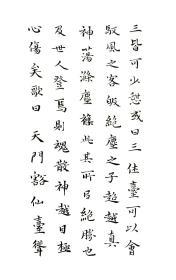 三皆可少憩或曰三休臺可以會
馭風之客皎絕塵之子超越真
神蕩滌塵雜此其所以絕勝也
及世人登焉則魂散神越目極
心傷矣歌曰 天門豁仙臺聳